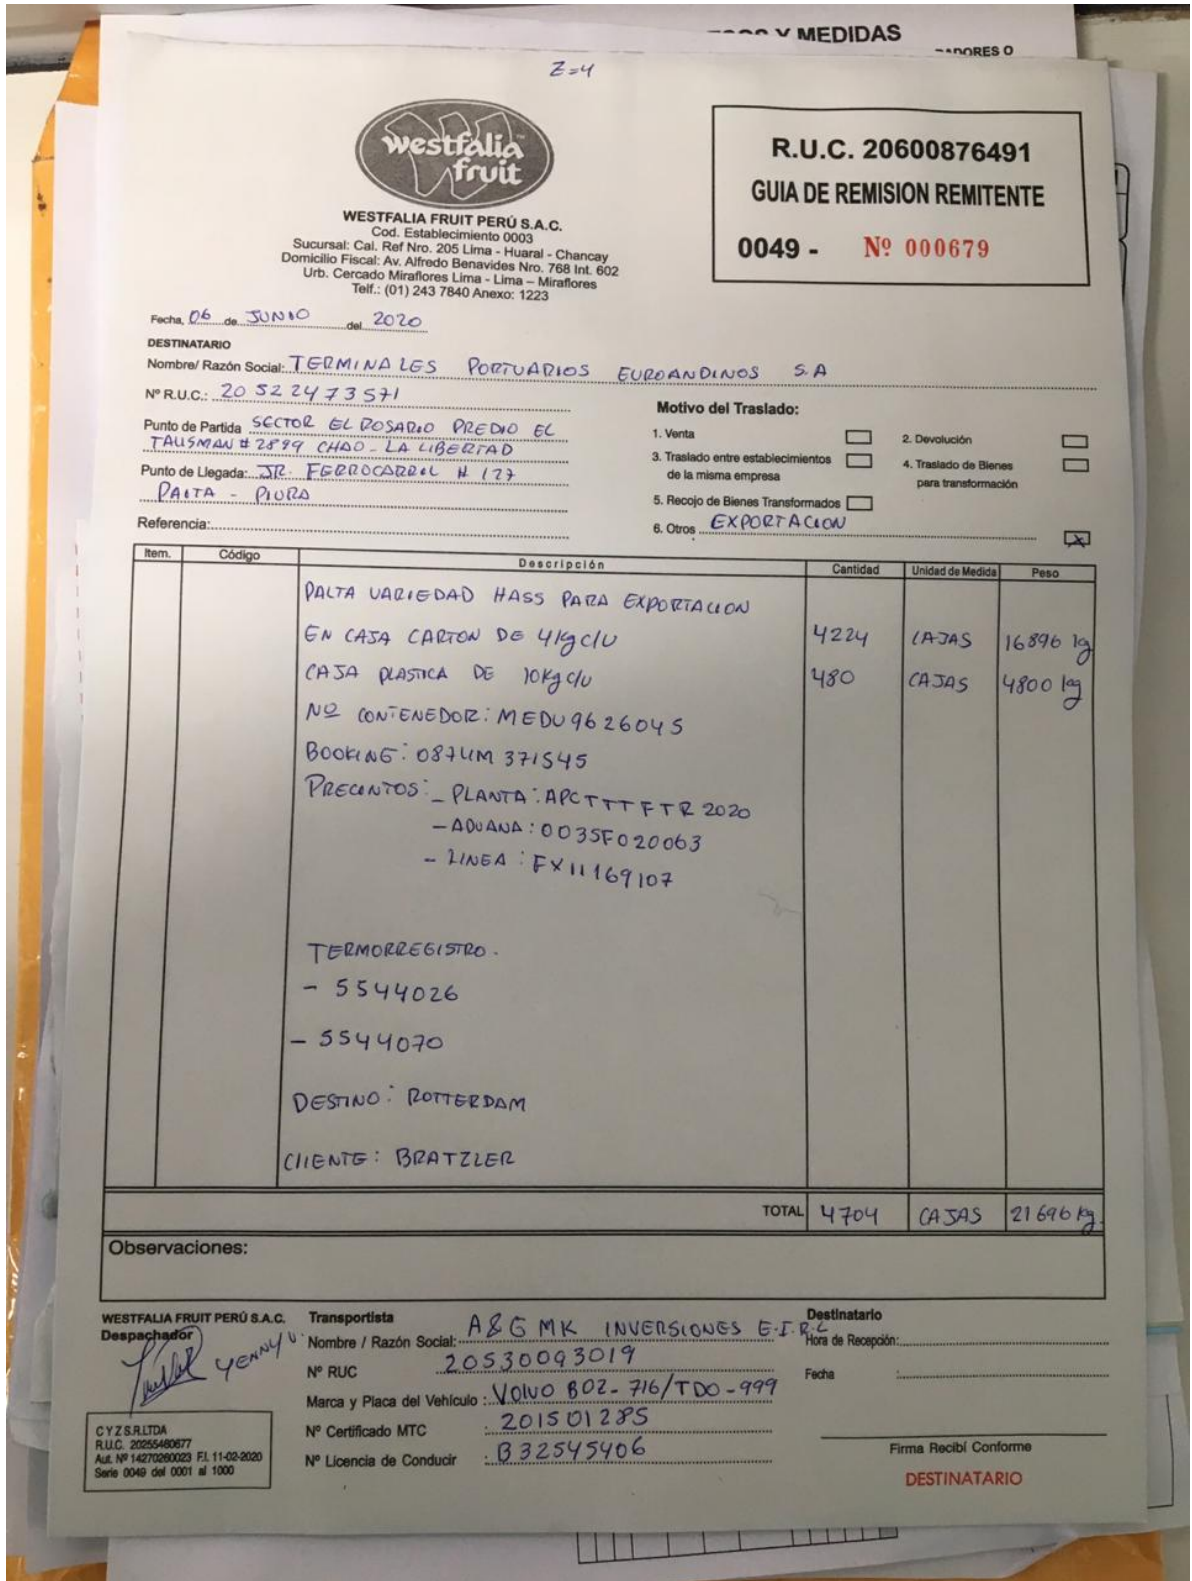 Y MEDIDAS
Z=4
westfalia
fruit
WESTFALIA FRUIT PERÚ S.A.C.
Cod. Establecimiento 0003
Sucursal: Cal. Ref Nro. 205 Lima - Huaral - Chancay
Domicilio Fiscal: Av. Alfredo Benavides Nro. 768 Int. 602
Urb. Cercado Miraflores Lima - Lima – Miraflores
Telf.: (01) 243 7840 Anexo: 1223
R.U.C. 20600876491
GUIA DE REMISION REMITENTE
0049 - Nº 000679
Fecha, 06 de JUNIO del 2020
DESTINATARIO
Nombre/ Razón Social: TERMINALES PORTUARIOS EUROANDINOS S.A
Nº R.U.C.: 20522473571
Punto de Partida SECTOR EL ROSARIO PREDIO EL
TALISMAN # 2899 CHAO - LA LIBERTAD
Punto de Llegada: JR. FERROCARROL # 127
PAITA - PIURA
Referencia:
Motivo del Traslado:
1. Venta
2. Devolución
3. Traslado entre establecimientos
de la misma empresa
4. Traslado de Bienes
para transformación
5. Recojo de Bienes Transformados
6. Otros EXPORTACION X
Item. Código Descripción Cantidad Unidad de Medida Peso
PALTA VARIEDAD HASS PARA EXPORTACION
EN CAJA CARTON DE 4kg c/u 4224 CAJAS 16896 kg
CAJA PLASTICA DE 10kg c/u 480 CAJAS 4800 kg
Nº CONTENEDOR: MEDU9626045
BOOKING: 087UM371545
PRECINTOS: - PLANTA: APCTTTFTR2020
- ADUANA: 0035F020063
- LINEA: FX11169107
TERMORREGISTRO.
- 5544026
- 5544070
DESTINO: ROTTERDAM
CLIENTE: BRATZLER
TOTAL 4704 CAJAS 21696 kg.
Observaciones:
WESTFALIA FRUIT PERÚ S.A.C.
Despachador
YENNY V.
Transportista
Nombre / Razón Social: A&G MK INVERSIONES E.I.R.L
Nº RUC 20530093019
Marca y Placa del Vehículo : VOLVO B0Z-716/TDO-999
Nº Certificado MTC : 201501285
Nº Licencia de Conducir : B32545406
Destinatario
Hora de Recepción:
Fecha :
Firma Recibí Conforme
DESTINATARIO
C Y Z S.R.LTDA
R.U.C. 20255460677
Aut. Nº 14270260023 F.I. 11-02-2020
Serie 0049 del 0001 al 1000